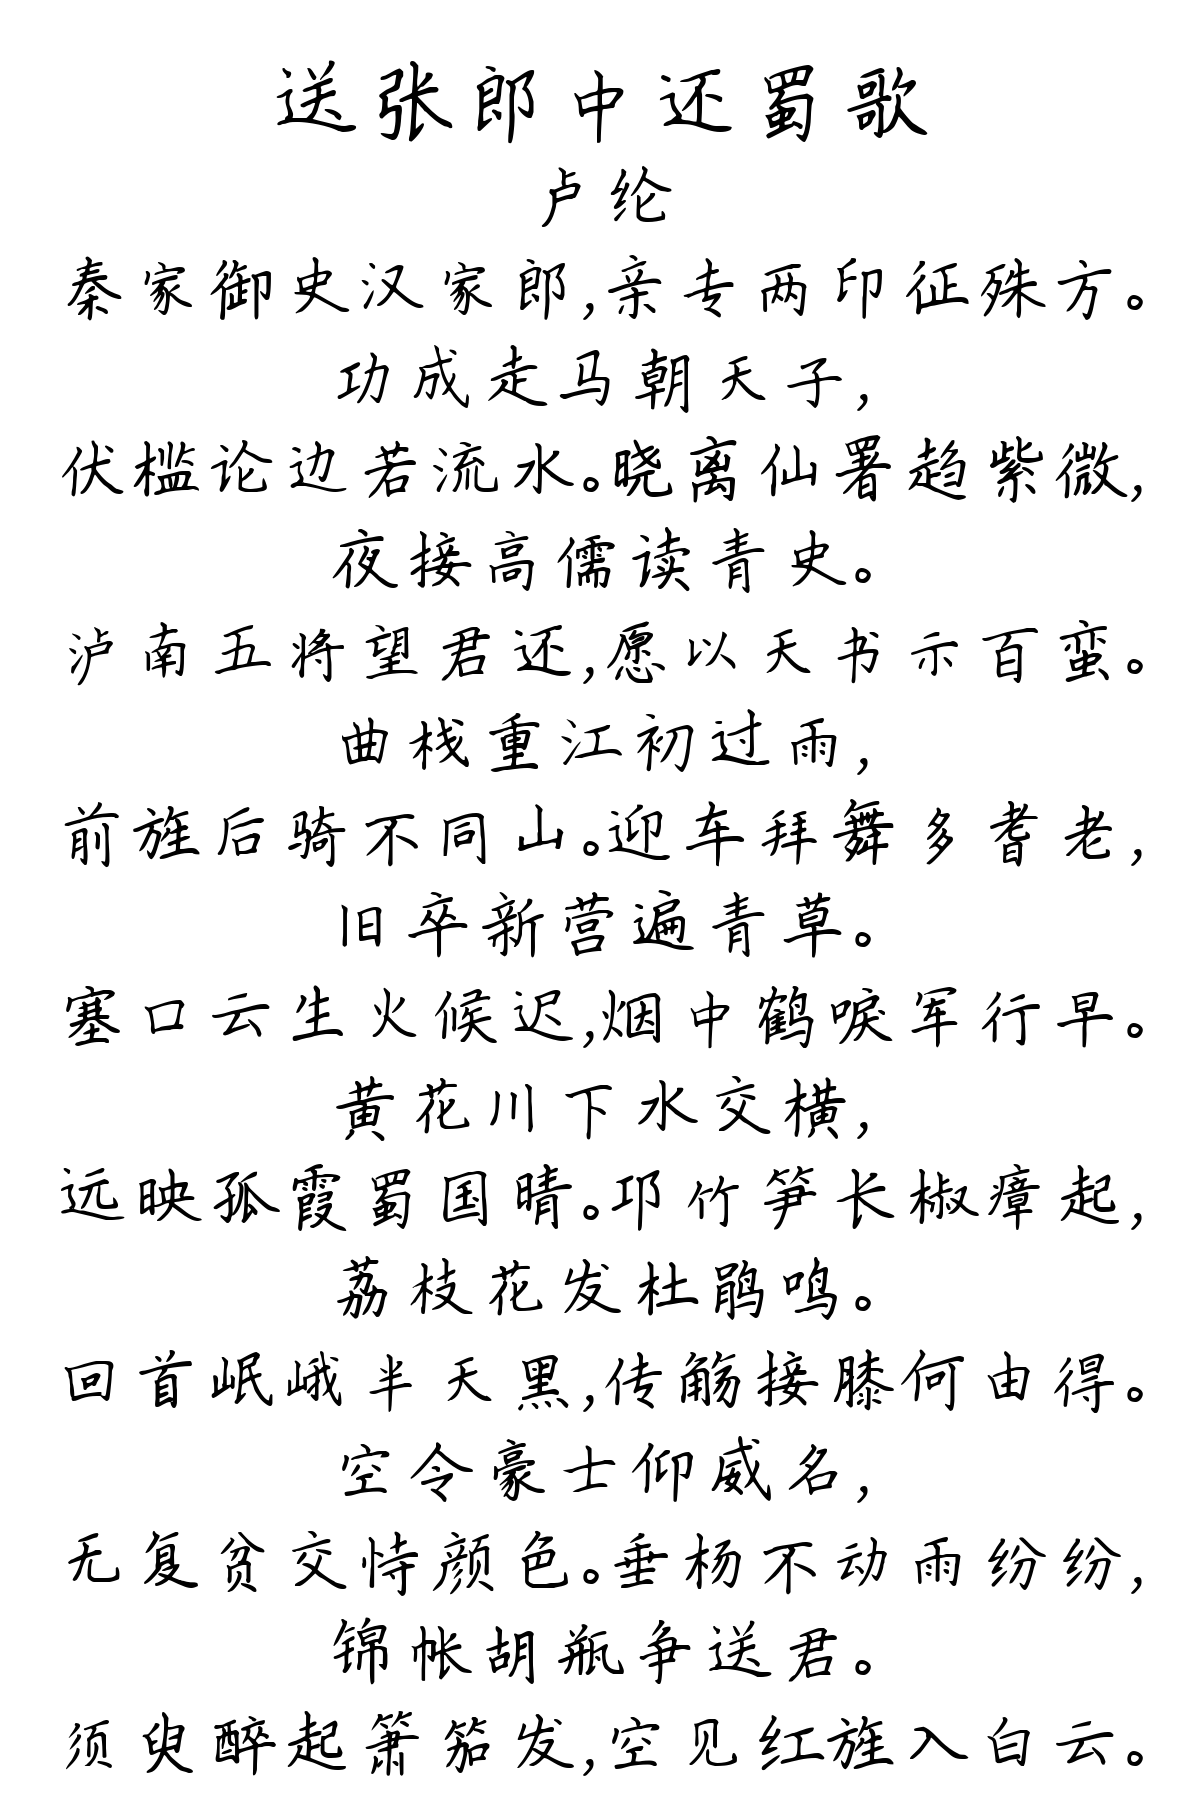 送张郎中还蜀歌
卢纶
秦家御史汉家郎,亲专两印征殊方。
功成走马朝天子,
伏槛论边若流水。晓离仙署趋紫微,
夜接高儒读青史。
泸南五将望君还,愿以天书示百蛮。
曲栈重江初过雨,
前旌后骑不同山。迎车拜舞多耆老,
旧卒新营遍青草。
塞口云生火候迟,烟中鹤唳军行早。
黄花川下水交横,
远映孤霞蜀国晴。邛竹笋长椒瘴起,
荔枝花发杜鹃鸣。
回首岷峨半天黑,传觞接膝何由得。
空令豪士仰威名,
无复贫交恃颜色。垂杨不动雨纷纷,
锦帐胡瓶争送君。
须臾醉起箫笳发,空见红旌入白云。